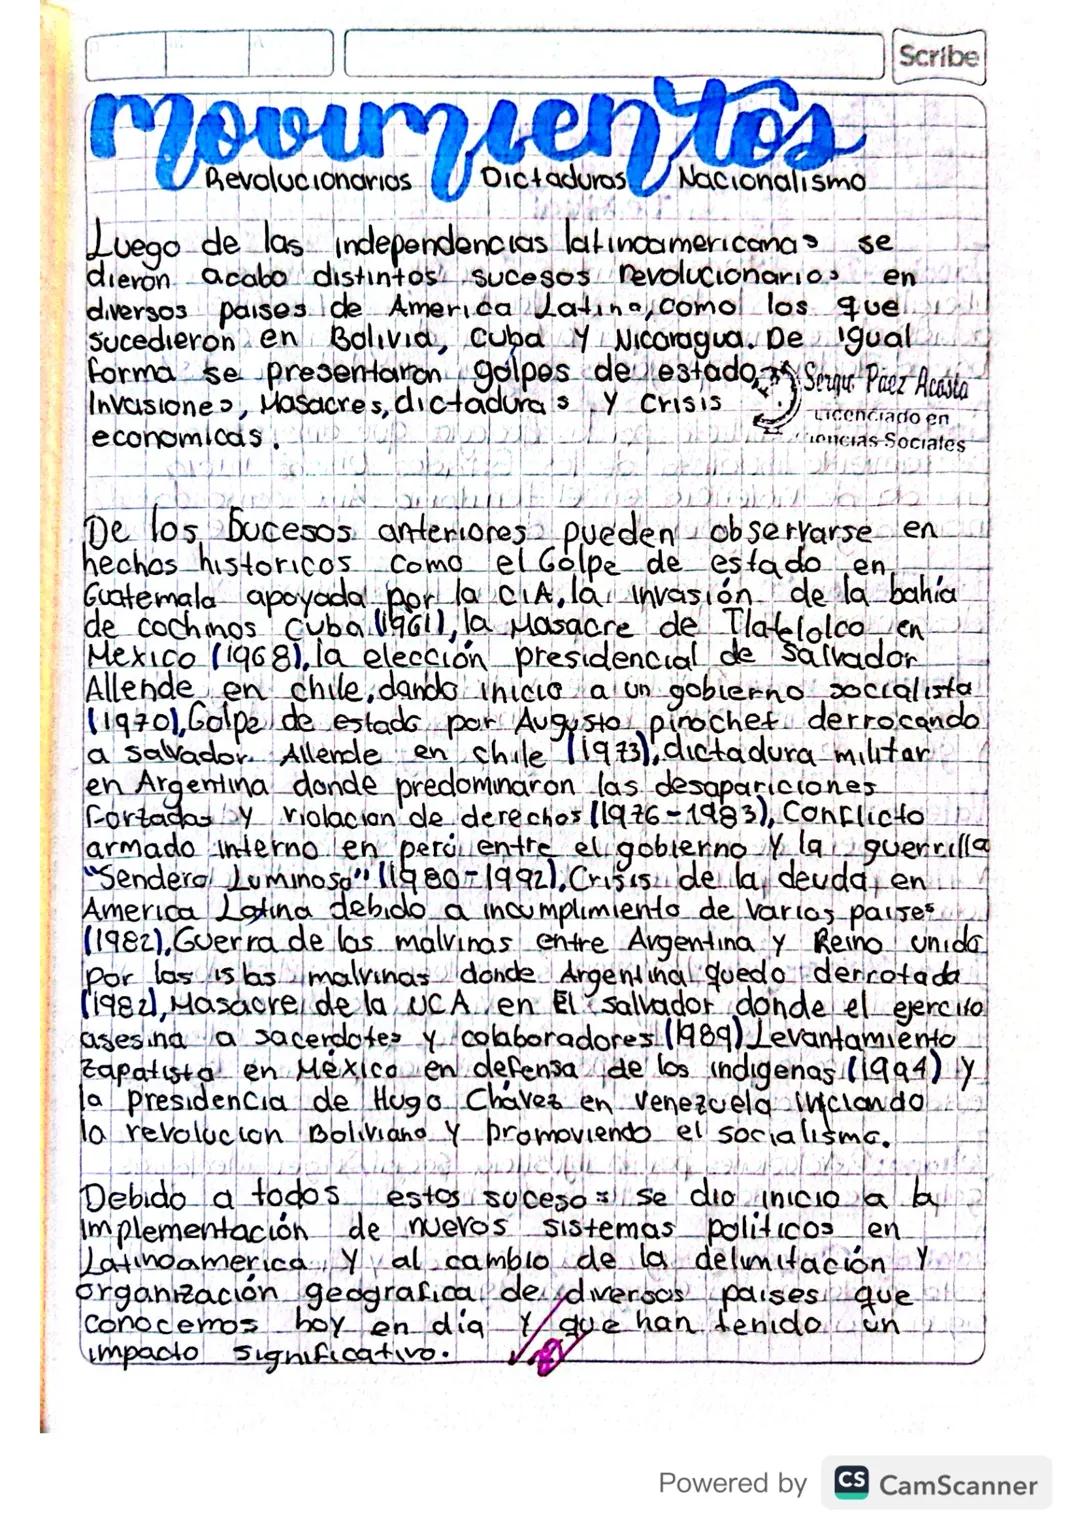 Scribe
Movimientos
Revolucionarios Dictaduras Nacionalismo
Luego de las independencias latinoamericanas se
dieron acabo distintos sucesos revolucionarios en
diversos paises de America Latina, como los que
sucedieron en Bolivia, Cuba y Nicaragua. De igual
forma se presentaron golpes de estado,
Invasiones, Masacres, dictaduras y crisis
economicas.
Sergio Páez Acosta
Licenciado en
iencias Sociales
De los Sucesos anteriores pueden observarse en
hechos historicos como el Golpe de estado en
Guatemala apoyada por la CIA, la invasión de la bahía
de cochinos Cuba (1961), la Masacre de Tlatelolco en
Mexico (1968), la elección presidencial de Salvador
Allende en chile, dando inicio a un gobierno socialista
(1970), Golpe de estado por Augusto pinochet derrocando
a salvador Allende en chile (1973), dictadura militar
en Argentina donde predominaron las desapariciones
forzadas y violacion de derechos (1976-1983), Conflicto
armado interno en perú entre el gobierno y la guerrilla
"Sendero Luminoso" (1980-1992), Crisis de la deuda en
America Latina debido a incumplimiento de varios paises
(1982), Guerra de las malvinas entre Argentina y Reino unido
por las islas malvinas donde Argentina quedo derrotada
(1982), Masacre de la UCA en El salvador donde el ejercito
asesina a sacerdotes y colaboradores (1989) Levantamiento
Zapatista en México en defensa de los indigenas (1994) y
la presidencia de Hugo Chávez en Venezuela iniciando
la revolucion Boliviana y promoviendo el socialismo.
Debido a todos estos sucesos se dio inicio a la
implementación de nuevos sistemas politicos en
Latinoamerica, y al cambio de la delimitación y
organización geografica de diversos paises que
conocemos hoy en día y que han tenido un
impacto significativo.
Powered by CS CamScanner